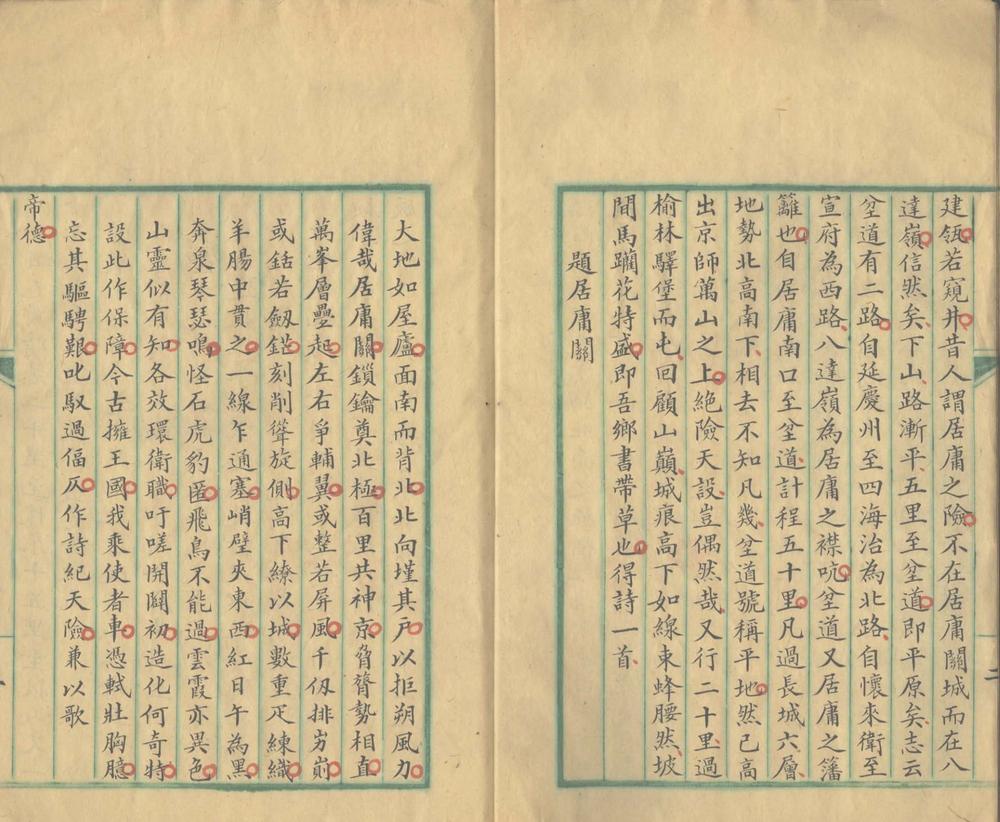 建瓴若窺井昔人謂居庸之險不在居庸關城而在八
達嶺信然矣下山路漸平五里至坌道即平原矣志云
坌道有二路自延慶州至四海治為北路自懷來衛至
宣府為西路八達嶺為居庸之襟吭坌道又居庸之籓
籬也自居庸南口至坌道計程五十里凡過長城六層
地勢北高南下相去不知凡幾坌道號稱平地然已高
出京師萬山之上絕險天設豈偶然哉又行二十里過
榆林驛堡而屯回顧山巔城痕高下如線束蜂腰然坡
間馬躪花特盛即吾鄉書帶草也得詩一首
題居庸關
二
大地如屋廬面南而背北北向墐其戶以拒朔風力
偉哉居庸關鎖鑰奠北極百里共神京脅膂勢相直
萬峯層疊起左右爭輔翼或整若屏風千仞排屴崱
或銛若劔鋩刻削聳旋側高下繚以城數重疋練織
羊腸中貫之一線乍通塞峭壁夾東西紅日午為黑
奔泉琴瑟鳴怪石虎豹匿飛鳥不能過雲霞亦異色
山靈似有知各效環衛職吁嗟開闢初造化何奇特
設此作保障今古擁王國我乘使者車憑軾壯胸臆
忘其驅騁艱叱馭過偪仄作詩紀天險兼以歌
帝德